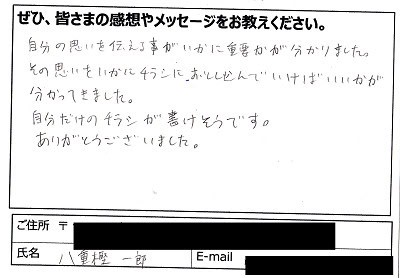 ぜひ、皆さまの感想やメッセージをお教えください。
自分の思いを伝える事がいかに重要かが分かりました。
その思いをいかにチラシに、おとしこんでいけばいいかが
分かってきました。
自分だけのチラシが書けそうです。
ありがとうございました。
ご住所 〒
氏名 八重樫 一郎 E-mail